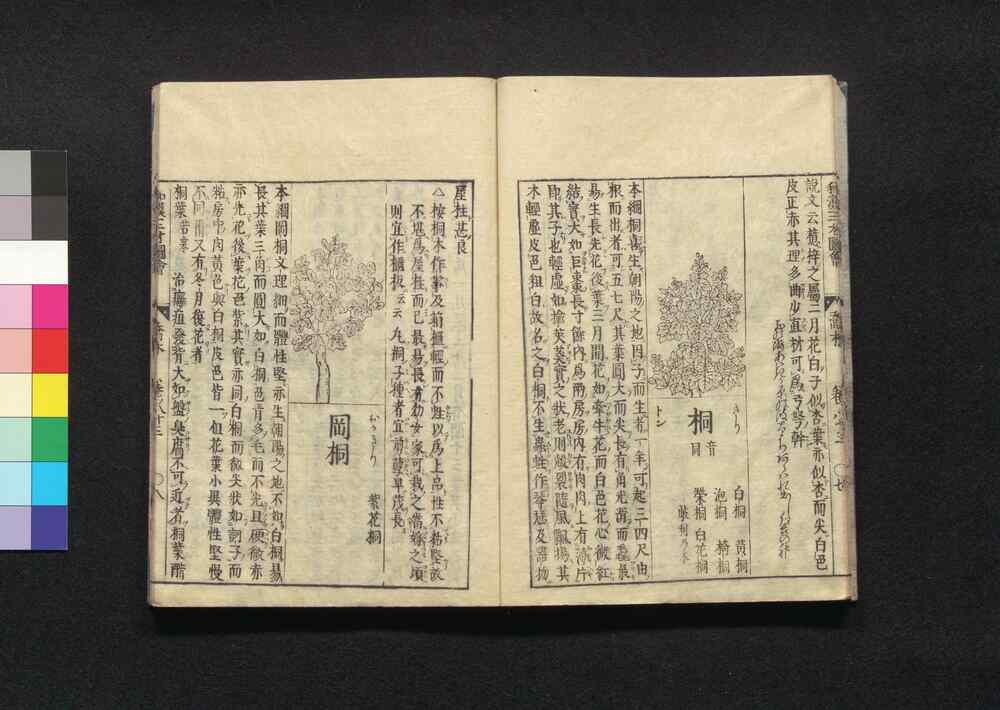 說文云楰梓之屬二月花白子似杏葉亦似杏而尖白色
皮正赤其理多曲少直材可為弓弩幹
桐
きり
音同
トン
白桐 黃桐
泡桐 椅桐
榮桐 白花桐
本綱桐喜生朝陽之地因子而生者一年可起三四尺由
根而出者可五七尺其葉圓大而尖長有角光滑而毳最
易生長先花後葉三月開花如牽牛花而白色花心微紅
結實大如巨棗長寸餘內為兩房房內有肉肉上有薄片
即其子也輕虛如榆莢葵實之狀老則殼裂隨風飄揚其
木輕虛皮色粗白故名之白桐不生蟲蛀作琴瑟及器物
屋柱甚良
△按桐木作箏及箱櫃輕而不蛀以為上品性不粘堅故
不堪為屋柱而已最易長有幼女家可栽之當嫁之頃
則宜作櫃板云云凡桐子種者宜莿蘖早茂長
岡桐
おかきり
紫花桐
本綱岡桐文理細而體性堅亦生朝陽之地不如白桐易
長其葉三角而圓大如白桐色青多毛而不光且硬微赤
亦先花後葉花色紫其實亦同白桐而微尖狀如訶子而
粘房中肉黃色與白桐皮色皆一但花葉小異體性堅慢
不同爾又有冬月復花者
桐葉苦寒 治癰疽發背大如盤臭腐不可近者桐葉醋
和漢三才圖會
喬木
卷八十三
〇八